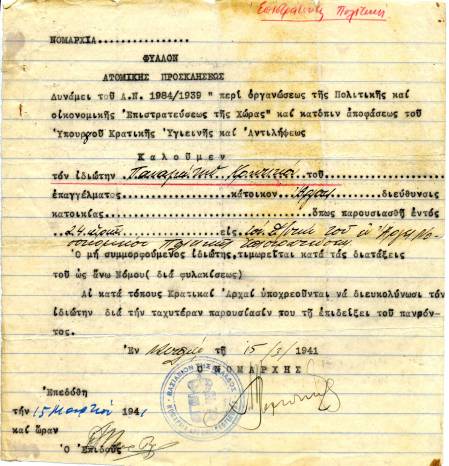 Ἐπιστράτευσις Πολιτική
ΝΟΜΑΡΧΙΑ................
ΦΥΛΛΟΝ
ΑΤΟΜΙΚΗΣ ΠΡΟΣΚΛΗΣΕΩΣ
Δυνάμει τοῦ Α.Ν. 1984/1939 " περί ὀργανώσεως τῆς Πολιτικῆς καί
οἰκονομικῆς Ἐπιστρατεύσεως τῆς Χώρας" καί κατόπιν ἀποφάσεως τοῦ
Ὑπουργοῦ Κρατικῆς Ὑγιεινῆς καί Ἀντιλήψεως
Κ α λ ο ῦ μ ε ν
τόν ἰδιώτην τοῦ
ἐπαγγέλματος κάτοικον Ἄργους διεύθυνσις
κατοικίας ὅπως παρουσιασθῇ ἐντός
24 εἰς
Ὁ μή συμμορφούμενος ἰδιώτης, τιμωρεῖται κατά τάς διατάξεις
τοῦ ὡς ἄνω Νόμου( διά φυλακίσεως)
Αἱ κατά τόπους Κρατικαί Ἀρχαί ὑποχρεοῦνται νά διευκολύνωσι τόν
ἰδιώτην διά τήν ταχυτέραν παρουσίασίν που τῇ ἐπιδείξει τοῦ παρόν-
τος.
Ἐν τῇ 15/3/1941
Ὁ ΝΟΜΑΡΧΗΣ
Ἐπεδόθη
τήν 15 Μαρτίου 1941
καί ὥραν
Ὁ Ἐπιδούς